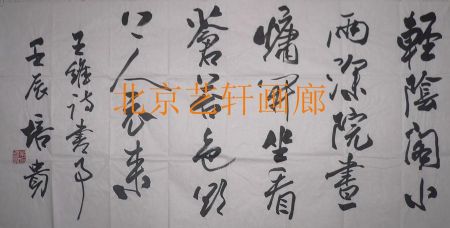 輕陰閣小
雨深院晝
慵開坐看
蒼苔色欲
上人衣来
王維诗書事
壬辰培貴
北京艺轩画廊